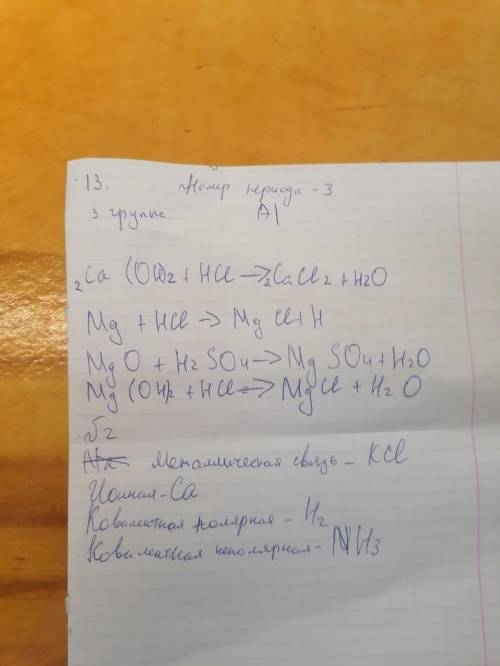 13. Номер периода - 3
3 группа. Al
2Ca(OH)2 + HCl → 2CaCl2 + H2O
Mg + HCl → MgCl + H
MgO + H2SO4 → MgSO4 + H2O
Mg(OH)2 + HCl → MgCl + H2O
√2
Металлическая связь - KCl
Ионная - Ca
Ковалентная полярная - H2
Ковалентная неполярная - NH3